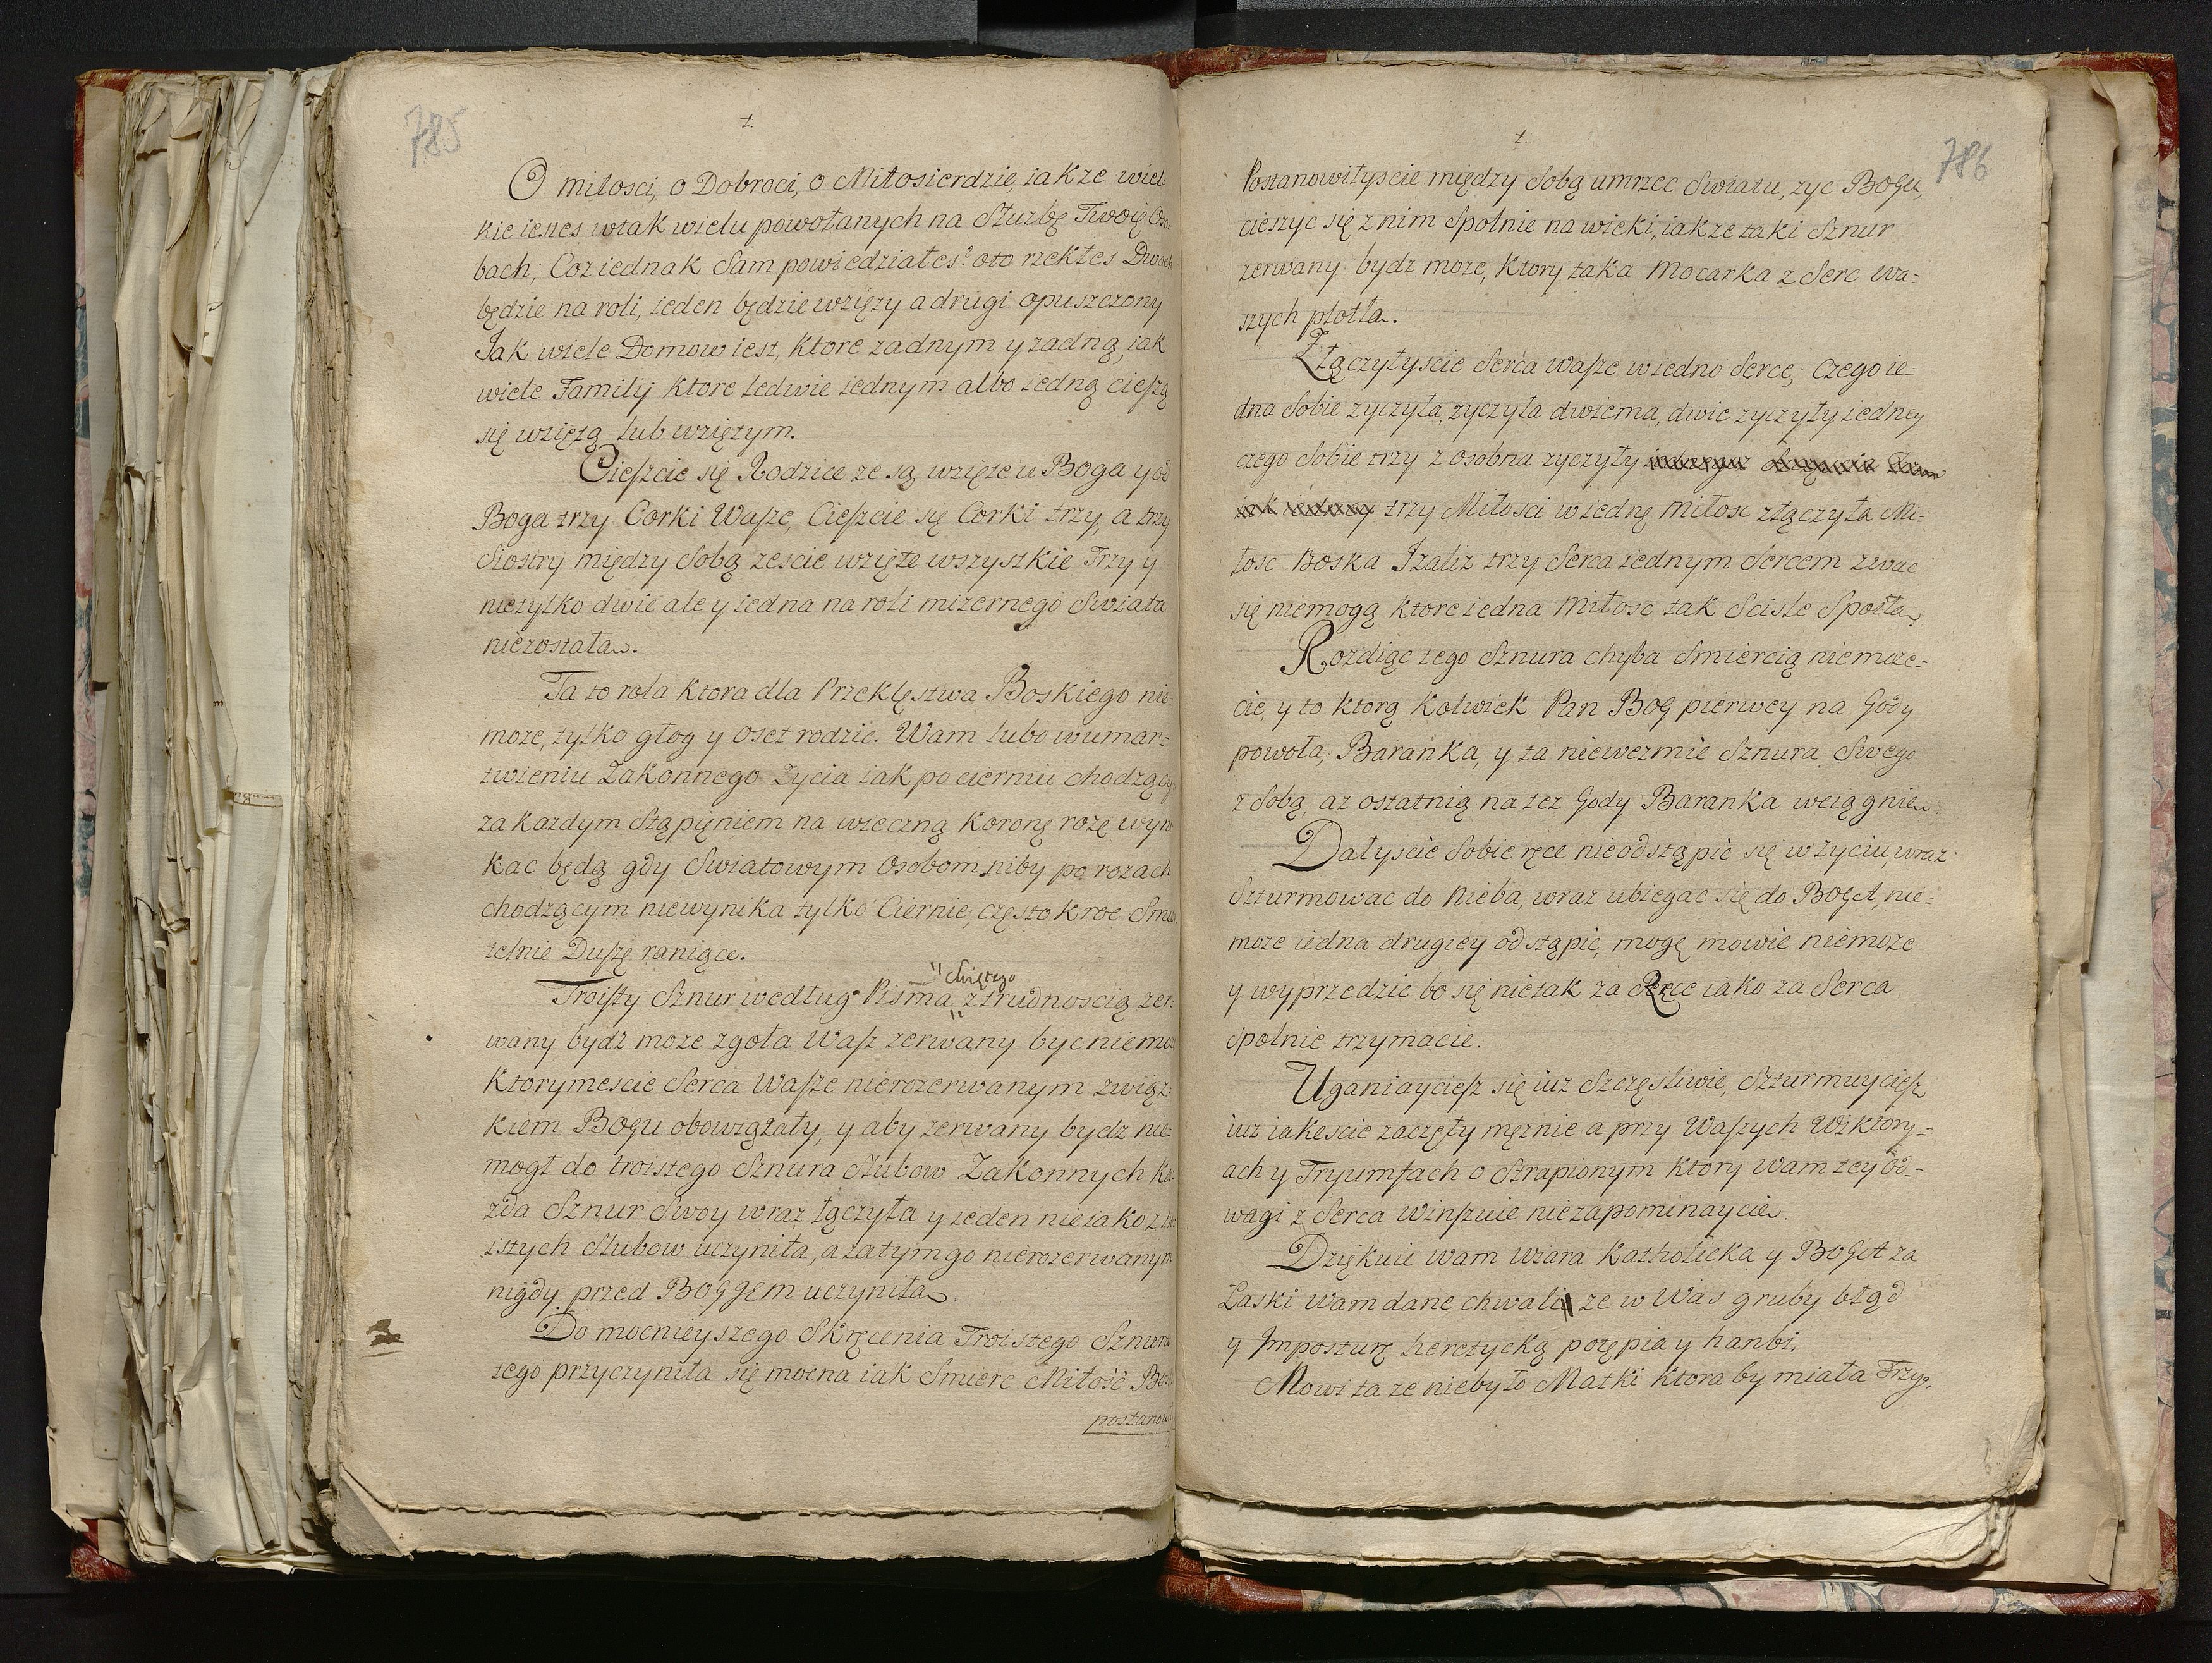 785
t.
O miłosci, o Dobroci, o Miłosierdzie, iakze wiel:
kie iestes wtak wielu powołanych na Służbę Twoię Oso
bach, Coz iednak Sam powiedziałes? oto rzekłes Dwoch
będzie na roli, ieden będzie wzięty a drugi opuszczony
Jak wiele Domow iest, ktore zadnym y zadną, iak
wiele Familij ktore ledwie iednym albo iedną cieſzą
się wziętą lub wziętym.
Cieſzcie się Rodzice ze są wzięte u Boga y od
Boga trzy Corki Waſze, Cieſzcie się Corki trzy, a trzy
Siostry między Sobą zescie wzięte wszystkie Trzy y
nietylko dwie ale y iedna na roli mizernego Swiata
niezostała.
Ta to rola ktora dla Przeklęstwa Boskiego nie:
moze, tylko głog y oset rodzic. Wam lubo wumar:
twieniu Zakonnego Zycia iak po cierniu chodzący
za kazdym Stąpięniem na wieczną koronę rozę wyni
kac będą gdy Swiatowym Osobom niby po rozach
chodzącym niewynika tylko Ciernie, częstokroc Smier
telnie Duſzę raniące.
" Swiętego
Troiſty Sznur według Pisma " z trudnoscią zer:
wany bydz moze zgoła Waſz zerwany byc niemo
ktorymescie Serca Waſze nierozerwanym związ:
kiem BOgu obowiązały, y aby zerwany bydz nie:
mogł do troistego Sznura Slubow Zakonnych Ka:
zda Sznur Swoy wraz łączyła y ieden nieiako z tro
istych Slubow uczyniła, a zatym go nierozerwanym
nigdy przed BOggEm uczyniła.
Do mocnieyszego Skręcenia Troistego Sznura
tego przyczyniła się mocna iak Smierc Miłość Bos
postanowi
t.
786
Postanowiłyscie między Sobą umrzec Swiatu, zyc BOgu,
cieszyc się z nim Spolnie na wieki, iakze taki Sznur
zerwany bydz moze, ktory taka Mocarka z Serc Wa:
szych plotła.
Złączyłyscie Serca Waſze wiedno Serce, czego ie:
dna Sobie zyczyła, zyczyła dwiema, dwie zyczyły iedney
czego Sobie trzy z osobna zyczyły
trzy Miłosci wiednę Miłosc złączyła Mi:
łosc Boska Jzaliz trzy Serca iednym Sercem zwac
się niemogą ktore iedna Miłosc tak Scisle Spoiła
Rozdiąc tego Sznura chyba Smiercią niemoze:
cie, y to ktorą kolwiek Pan BOg pierwey na Gody
powoła, Baranka, y ta niewezmie Sznura Swego
z Sobą, az ostatnią na tez Gody Baranka wciągnie.
Dałyscie Sobie ręce nieodstąpic się w zyciu, wraz
Szturmowac do Nieba, wraz ubiegac się do BOgA, nie:
moze iedna drugiey odstąpic, mogę mowic niemoze
y wyprzedzic bo się nietak za Ręce iako za Serca
Spolnie trzymacie.
Uganiaycieſz się iuz Szczęsliwie, Szturmuycieſz
iuz iakescie zaczęły męznie a przy Waſzych Wiktory:
ach y Tryumfach o Strapionym ktory Wam tey od:
wagi z Serca Winſzuie niezapominaycie.
Dziękuie Wam Wiara Katholicka y BOgA za
Łaski Wam dane chwali ze w Was gruby błąd
y Imposturę heretycką potępia y hanbi.
Mowi ta ze niebyło Matki ktora by miała Trzy.